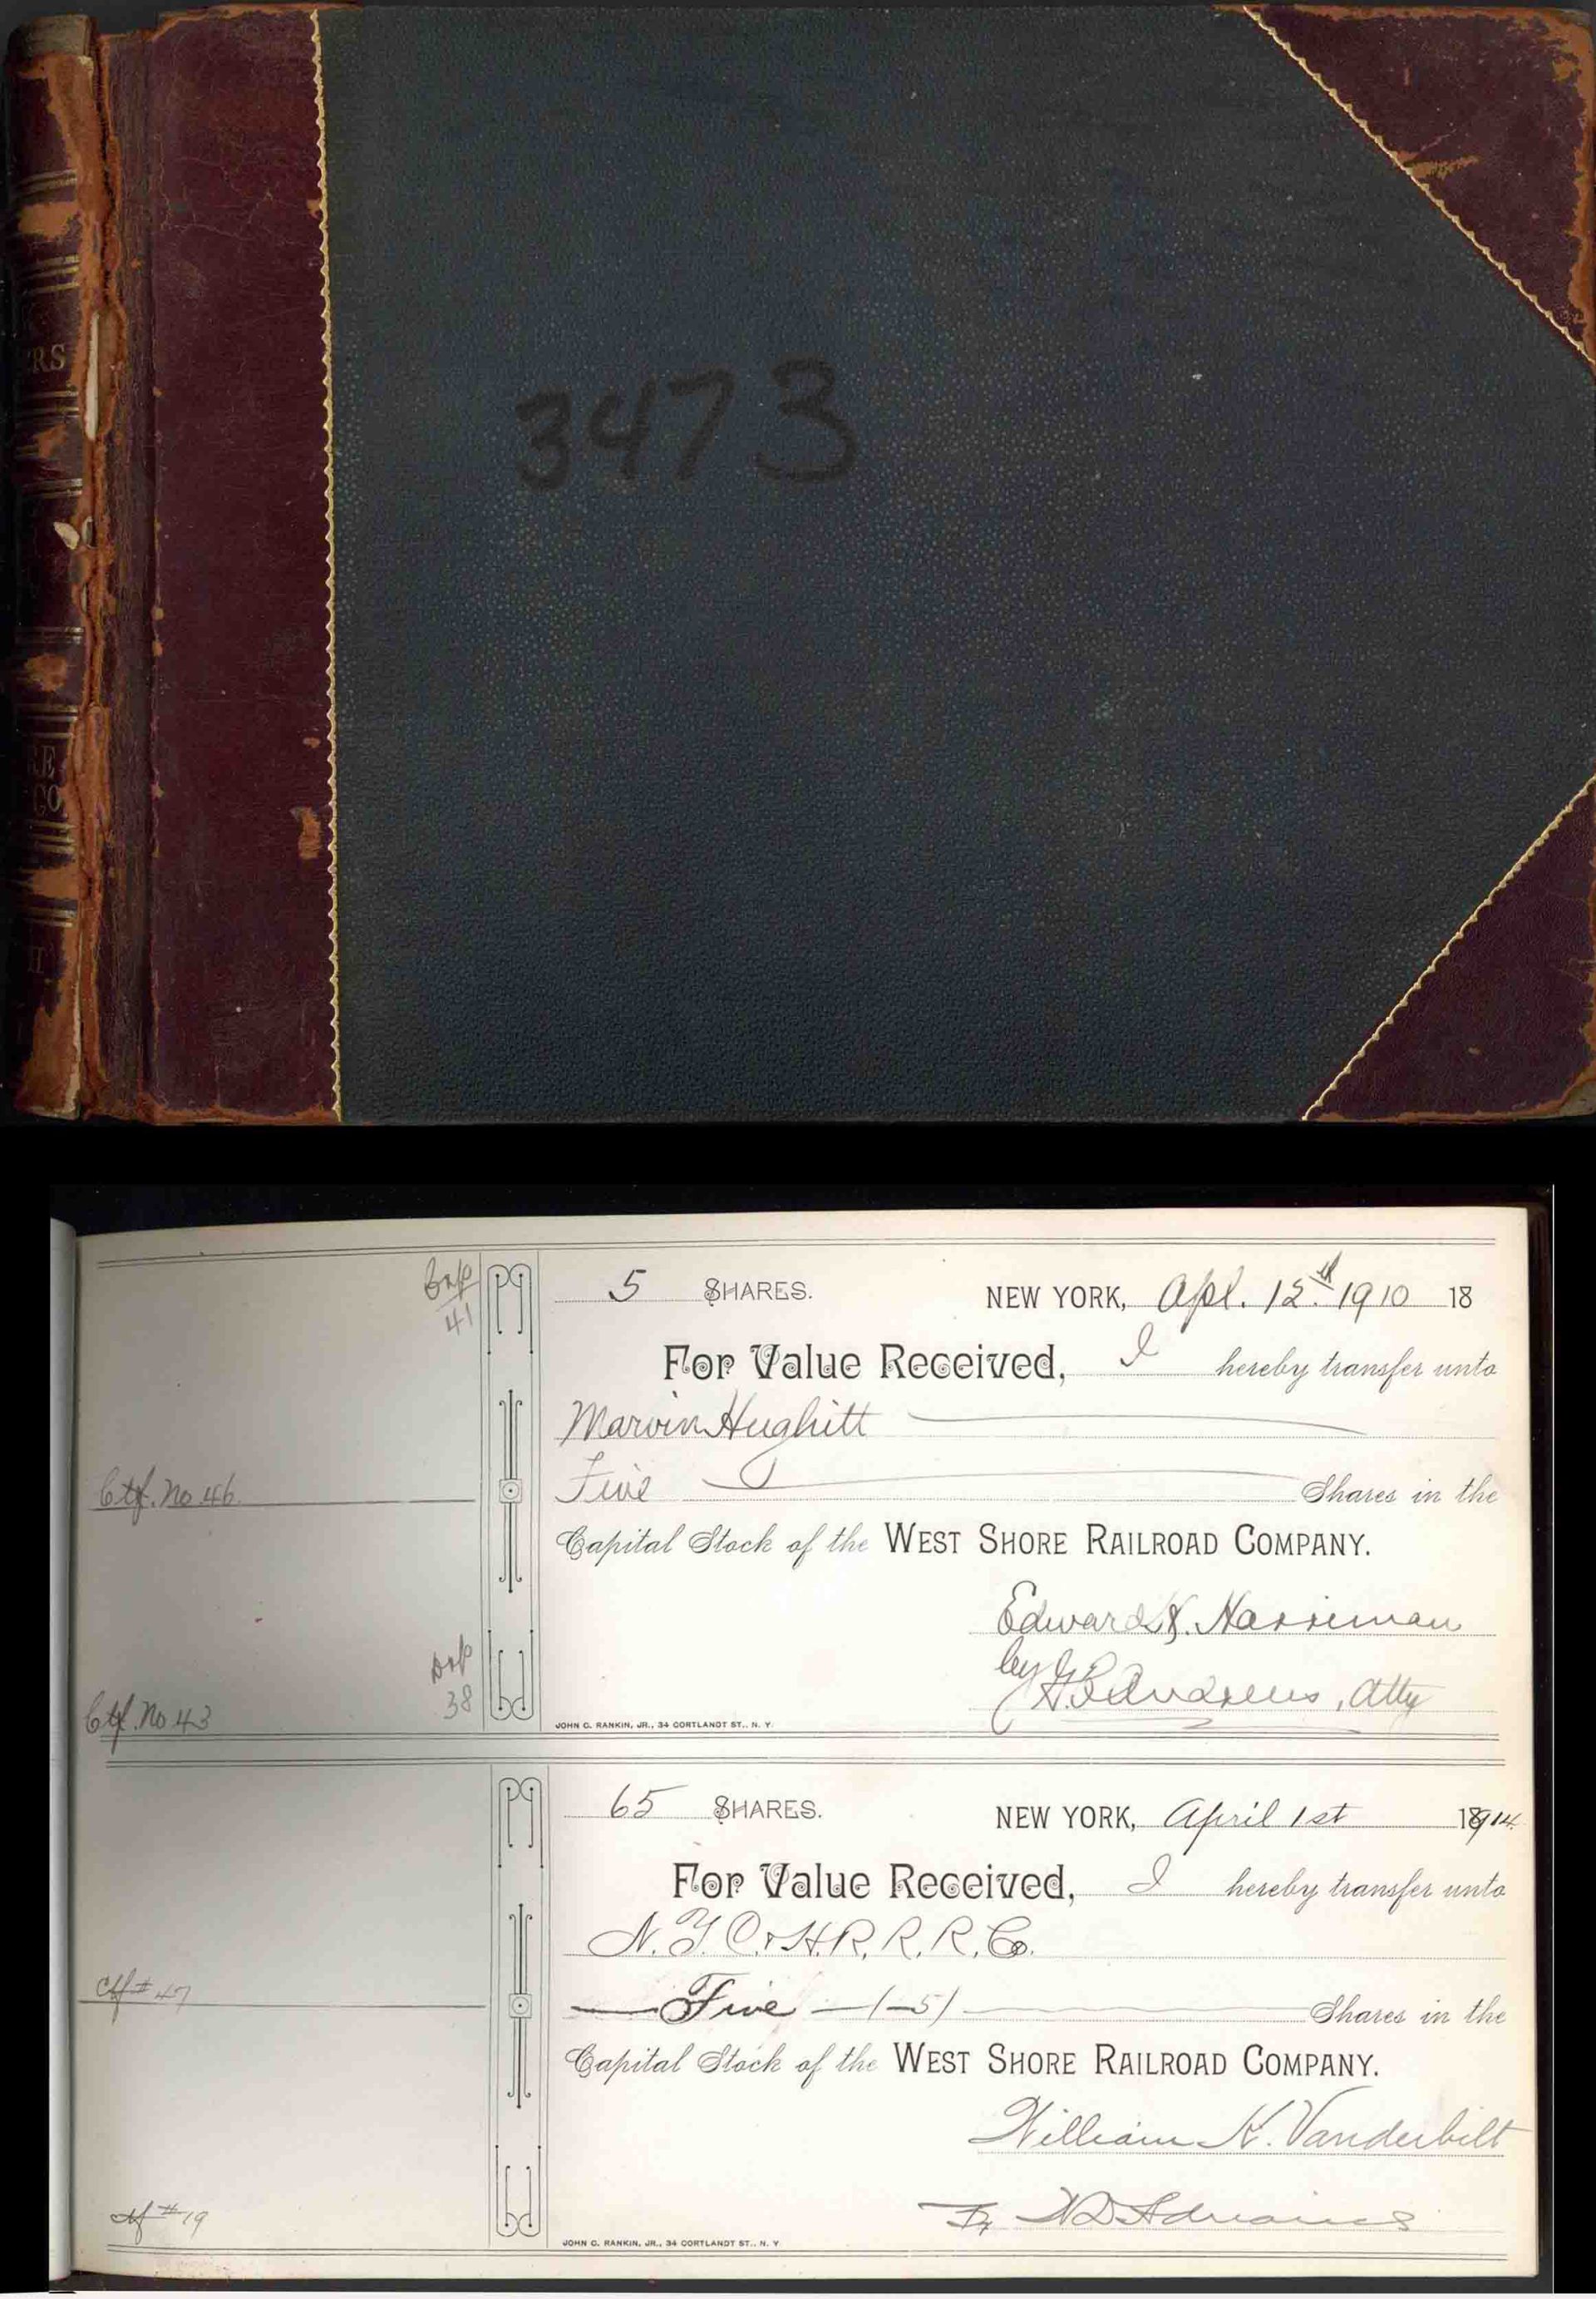 RS
3473
RE
CO
5 SHARES. NEW YORK, Apl. 12th 1910 18
41
For Value Received, I hereby transfer unto
Marvin Hughitt
Ctf. No 46. Five Shares in the
Capital Stock of the WEST SHORE RAILROAD COMPANY.
Edward H. Harriman
38
by Andrews, Atty
Ctf. No 43
JOHN C. RANKIN, JR., 34 CORTLANDT ST., N. Y.
65 SHARES. NEW YORK, April 1st 1914.
For Value Received, I hereby transfer unto
N. Y. C. & H. R. R. R. Co.
Ctf # 47 Five (5) Shares in the
Capital Stock of the WEST SHORE RAILROAD COMPANY.
William K. Vanderbilt
ctf # 19
JOHN C. RANKIN, JR., 34 CORTLANDT ST., N. Y.